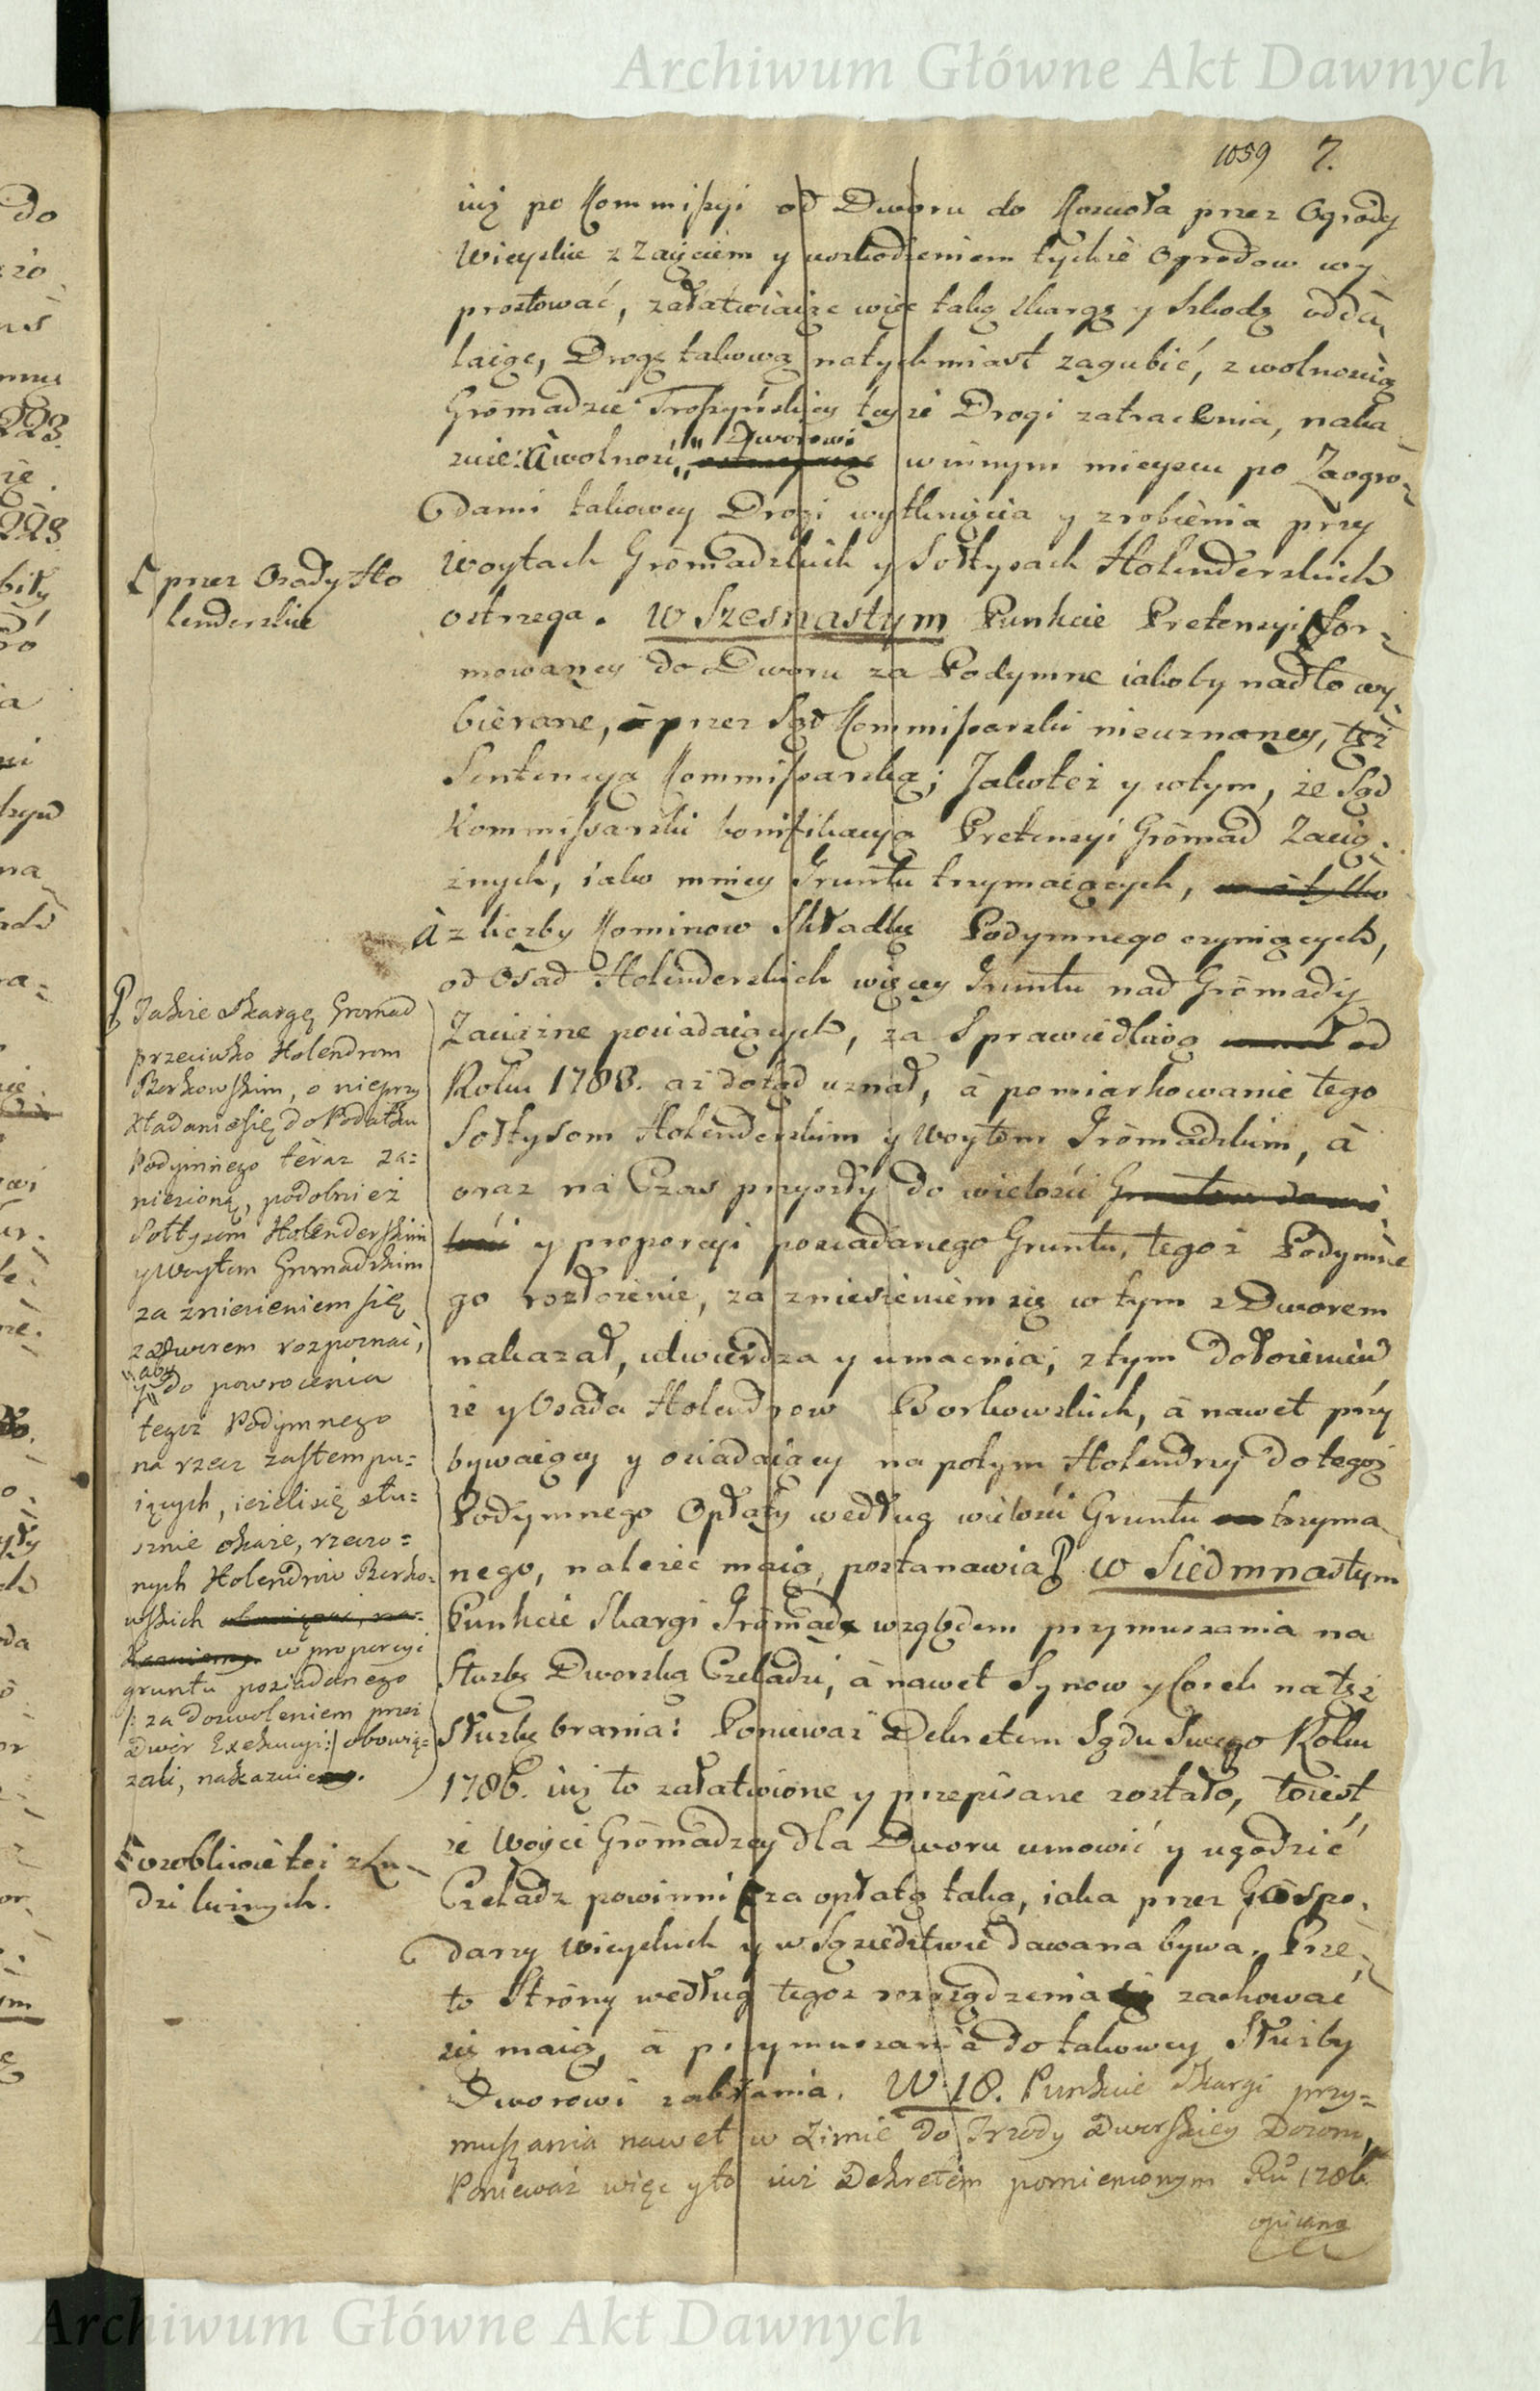 Archiwum Główne Akt Dawnych
1059 7.
iuż po Kommissyi od Dworu do Kościoła przez Ogrody
Wieyskie z Zaięciem y uszkodzeniem tychże Ogrodow wy
prostować, załatwiaiąc więc taką skargę y Szkodę odda
laiąc, Drogę takową natychmiast zagubić, z wolnością
Gromadzie Troszyńskiey teyże Drogi zatracenia, naka
zuie: à wolność „ Dworowi w innym mieyscu po Zaogro-
dami takowey Drogi wytknięcia y zrobienia przy
Woytach Gromadzkich y Sołtysach Holenderskich
ostrzega. w Szesnastym Punkcie Pretensyi [ for-
mowaney do Dworu za Podymne iakoby nadto wy
bierane, à przez Sąd Kommissarski nieuznaney, też
Sentencyą Kommissarską; Jakoteż y wtym, że Sąd
Kommissarski bonifikacyą Pretensyi Gromad Zacią-
żnych, iako mniey Gruntu trzymaiących,
à z liczby Kominow Składkę Podymnego czyniących,
od Osad Holenderskich więcey Gruntu nad Gromady
Zaciężne posiadaiących, za Sprawiedliwą od
Roku 1788. aż dotąd uznał, à pomiarkowanie tego
Sołtysom Holenderskim y Woytom Gromadzkim, à
oraz na Czas przyszły do wielości
y proporcyi posiadanego Gruntu, tegoż Podymne
go rozłożenie, za zniesieniem się w tym z Dworem
nakazał, utwierdza y umacnia; z tym dołożeniem
że y Osada Holendrow Borkowskich, à nawet przy
bywaiący y osiadaiący napotym Holendrzy do tegoż
Podymnego Opłaty według wielości Gruntu trzyma
nego, należeć maią, postanawia w Siedmnastym
Punkcie Skargi Gromad względem przymuszania na
Służbę Dworską Czeladzi, à nawet Synow y Corek na też
Służbę brania: Ponieważ Dekretem Sądu Swego Roku
1786. iuż to załatwione y przepisane zostało, toiest
że Woyci Gromadzcy dla Dworu umowić y ugodzić
Czeladz powinni [ za opłatą taką, iaka przez Gospo-
darzy Wieyskich y w Sąsiedztwie dawana bywa. Prze-
to Strony według tegoż rozrządzenia zachować
się maią, à przymuszania do takowey Służby
Dworowi zabrania. W 18. Punkcie Skargi przy=
muszania nawet w Zimie do Trzody Dworskiey Dozoru,
Ponieważ więc y to iuż Dekretem pomienionym Ru 1786.
opisano
[ przez Osady Ho
lenderskie
Takze Skargę Gromad
przeciwko Holendrom
Borkowskim, o nieprzy
kładanie się do Podatku
Podymnego teraz za=
niesioną, podobnież
Sołtysom Holenderskim
y Woytom Gromadzkim
za zniesieniem się
z Dworem rozpoznać,
y „aby„ do powrocenia
tegoż Podymnego
na rzecz zastempu=
iących, ieżeli się słu=
sznie okaże, rzeczo=
nych Holendrow Borko=
wskich
w proporcyi
gruntu posiadanego
/: za dozwoleniem przez
Dwor Exekucyi :/ obowią=
zali, nakazuie.
[ osobliwie też z Lu-
dzi luznych.
Archiwum Główne Akt Dawnych